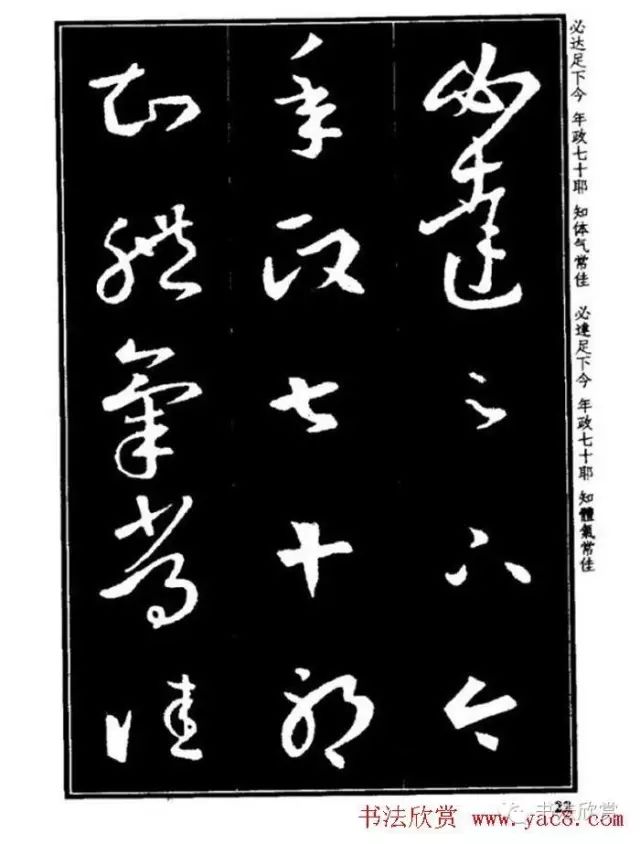 必達足下今
年政七十耶
知體氣常佳
必达足下今 年政七十耶 知体气常佳
必達足下今 年政七十耶 知體氣常佳
22
书法欣赏
书法欣赏 www.yac8.com